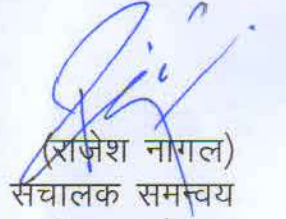 (राजेश नागल)
संचालक समन्वय